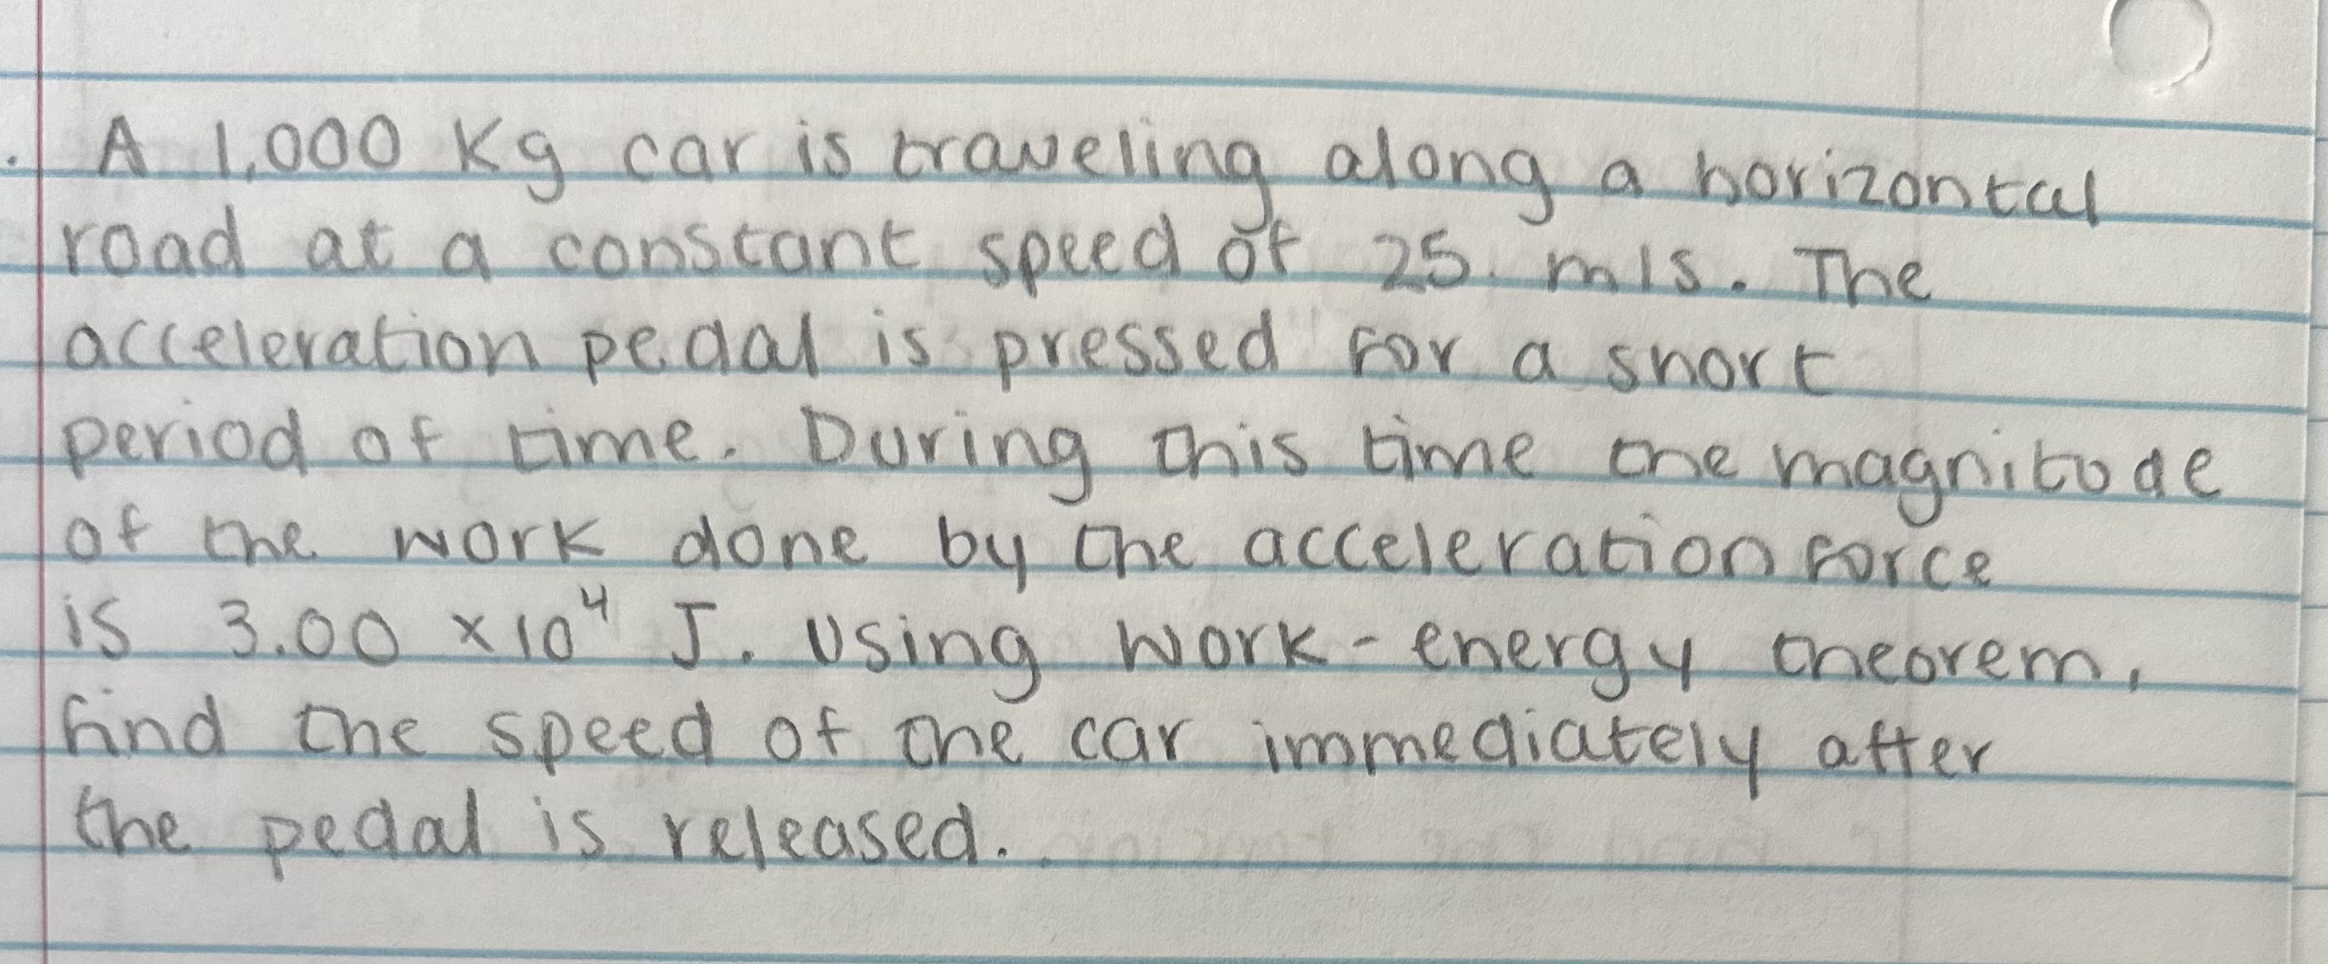 . A 1,000 Kg car is traveling along a horizontal
road at a constant speed of 25 m/s. The
acceleration pedal is pressed for a short
period of time. During this time the magnitude
of the work done by the acceleration force
is 3.00 x10⁴ J. Using work-energy theorem,
find the speed of the car immediately after
the pedal is released.